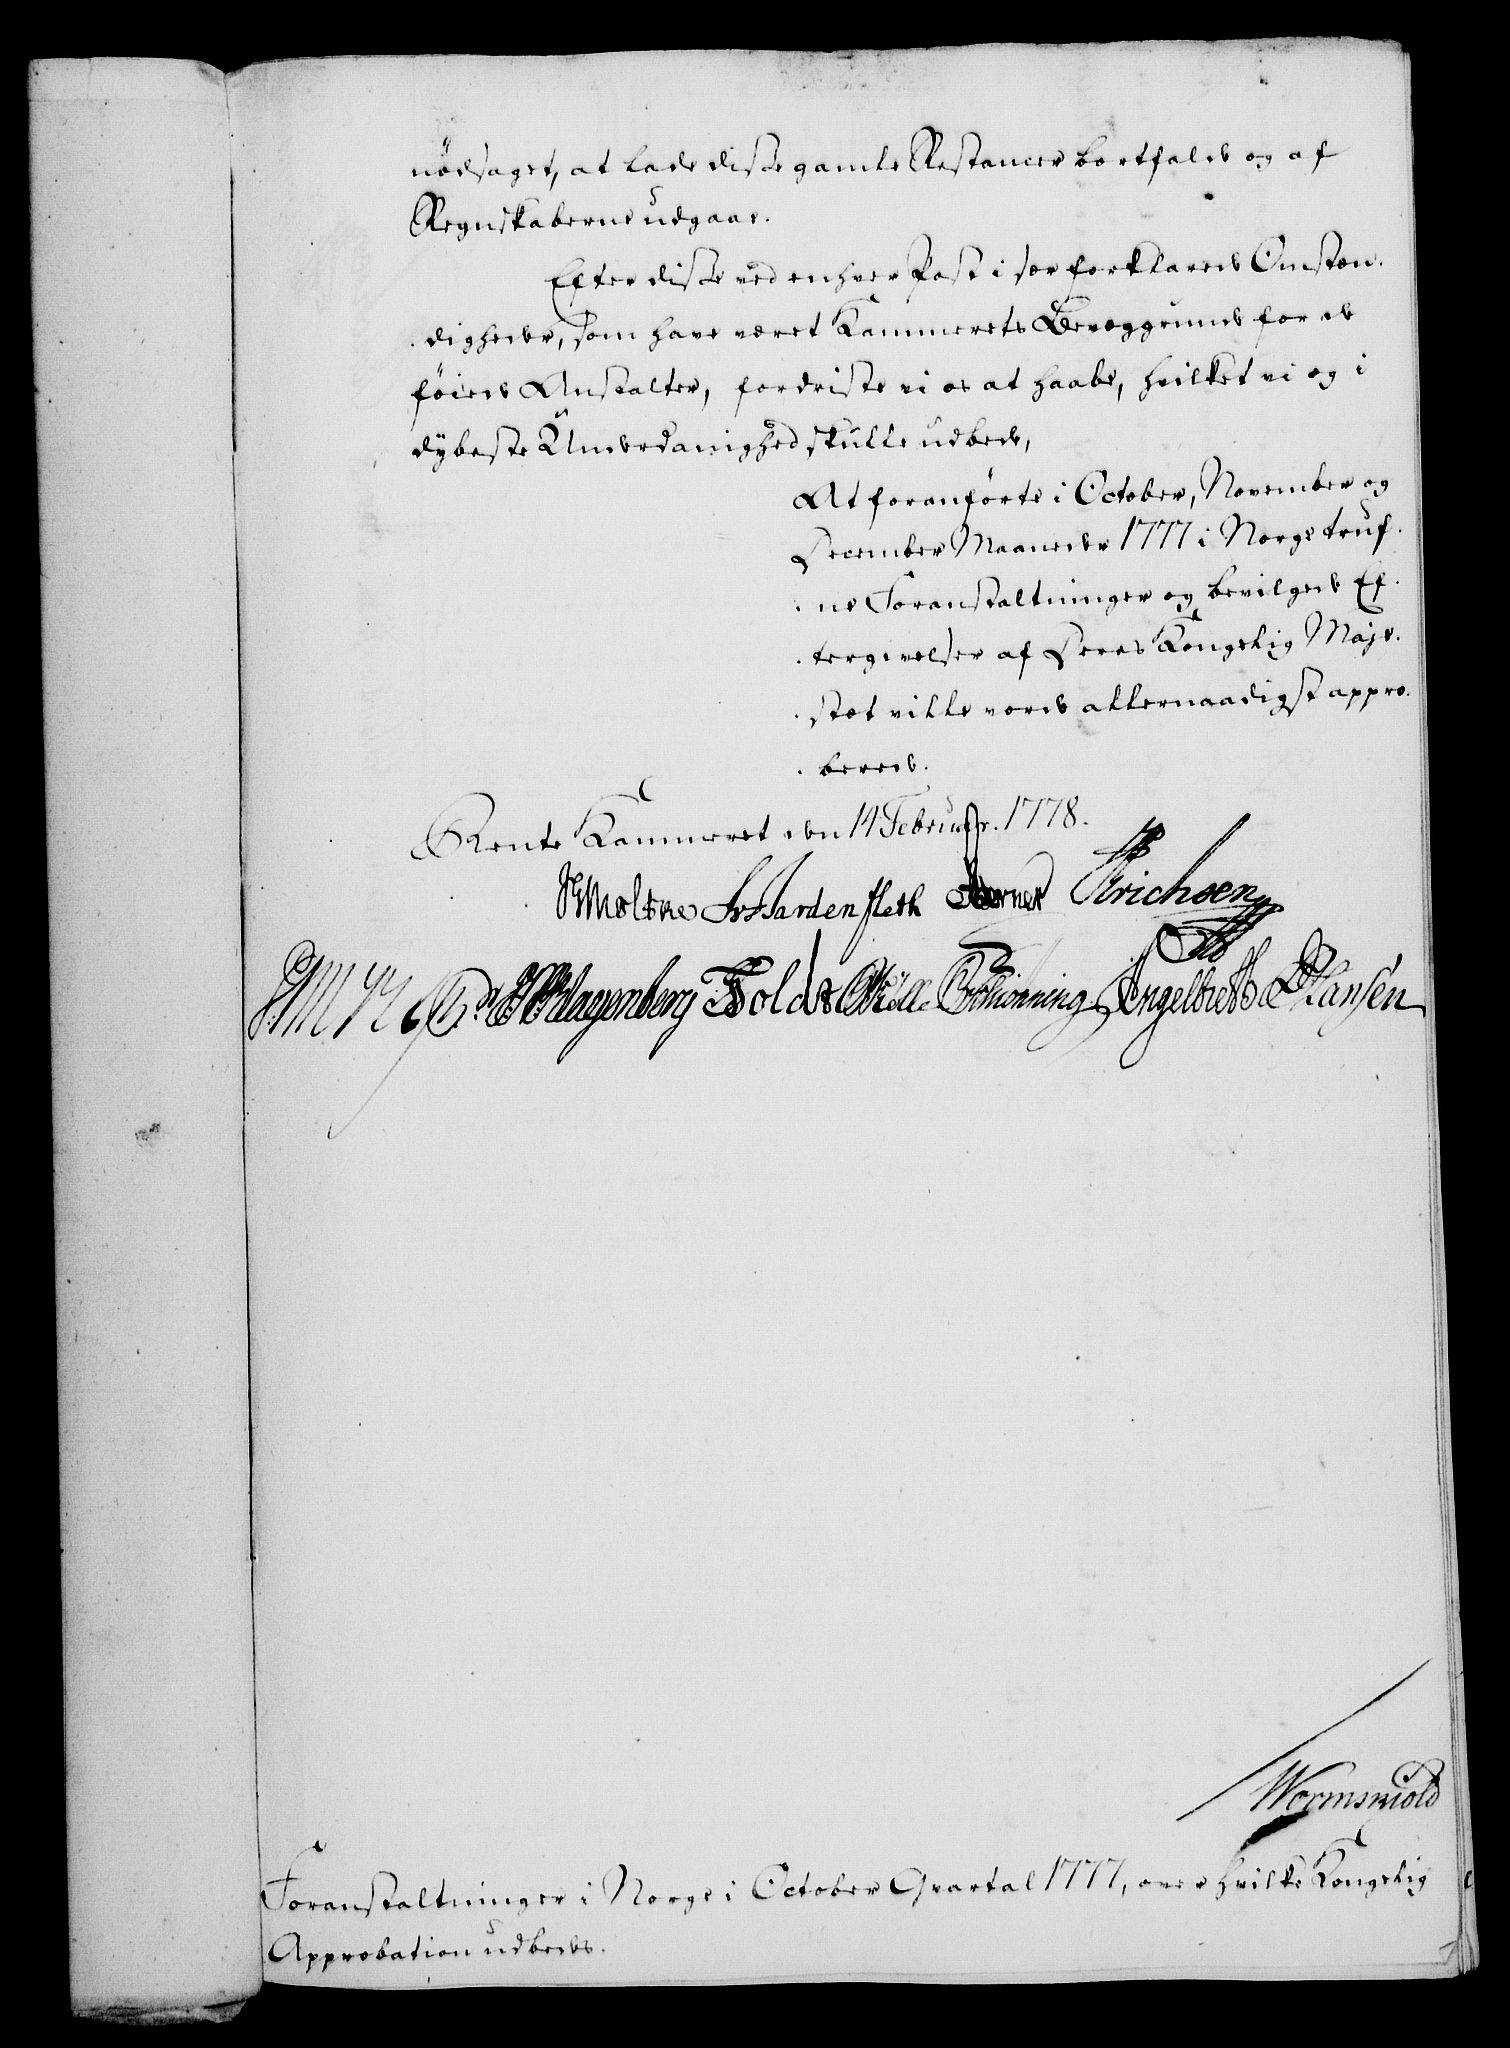 nødsaget, at lade disse gamle Restancer bortfalde og af
Regnskaberne udgaae.
Efter disse ved enhver Post i sær forklarede Omstæn-
digheder, som have været Kammerets Bevæggrunde for de
føiede Anstalter, fordriste vi os at haabe, hvilket vi og i
dybeste Underdanighed skulle udbede,
At foranførte i October, November og
December Maaneder 1777 i Norge truf-
ne Foranstaltninger og bevilgede Ef-
tergivelser af Deres Kongelig Maje-
stæt ville vorde allernaadigst appro-
berede.
Rente Kammeret den 14 Februar. 1778.
Moltke Hardenfleth Erichsen
Klagenberg Holdt Müller Schiønning Engelbreth Hansen
Wormskiold
Foranstaltninger i Norge i October Qvartal 1777, over hvilke Kongelig
Approbation udbedes.